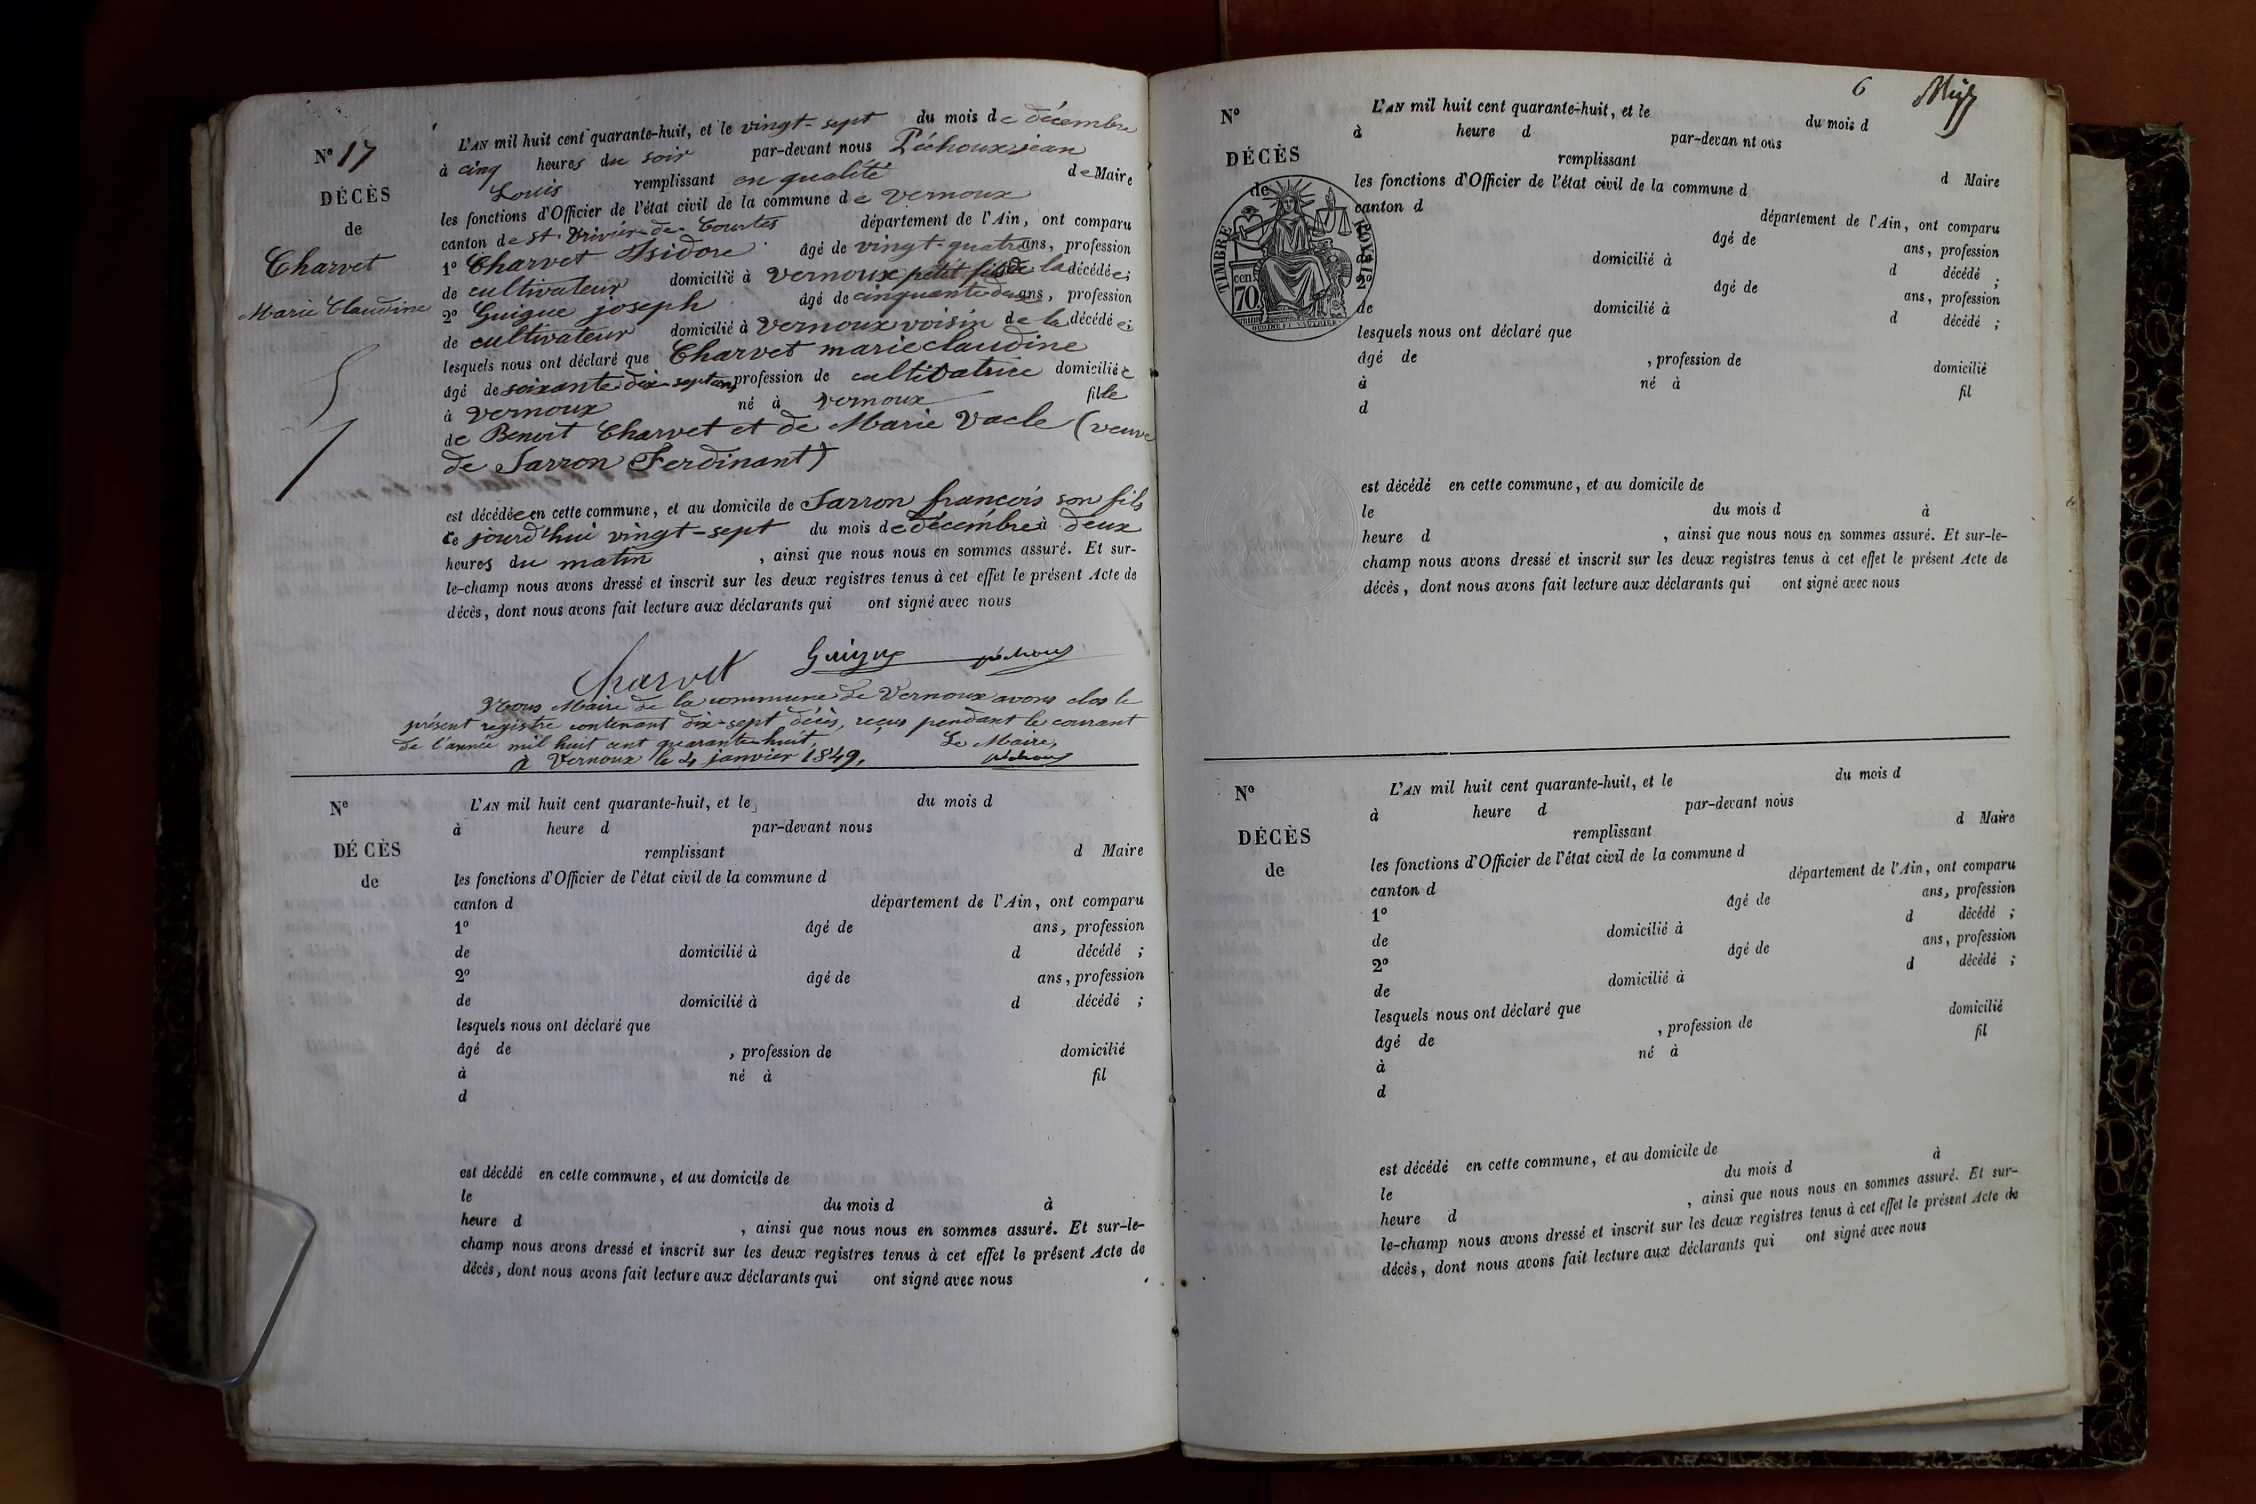 N° 17
DÉCÈS
de
Charvet
Marie Claudine
L'AN mil huit cent quarante-huit, et le vingt-sept du mois de décembre
à cinq heures du soir par-devant nous Péchoux jean
Louis remplissant en qualité de Maire
les fonctions d'Officier de l'état civil de la commune de Vernoux
canton de St. Trivier-de-Courtes département de l'Ain, ont comparu
1° Charvet Isidore âgé de vingt-quatre ans, profession
de cultivateur domicilié à Vernoux petit fils de la décédée;
2° Guigue joseph âgé de cinquante deux ans, profession
de cultivateur domicilié à Vernoux voisin de la décédée;
lesquels nous ont déclaré que Charvet marie claudine
âgé de soixante dix-sept ans profession de cultivatrice domiciliée
à Vernoux né à Vernoux fille
de Benoit Charvet et de Marie Vacle (veuve
de Sarron Ferdinant)
est décédée en cette commune, et au domicile de Sarron françois son fils
ce jourd'hui vingt-sept du mois de décembre à deux
heures du matin, ainsi que nous nous en sommes assuré. Et sur-
le-champ nous avons dressé et inscrit sur les deux registres tenus à cet effet le présent Acte de
décès, dont nous avons fait lecture aux déclarants qui ont signé avec nous
Charvet Guigue péchoux
Nous Maire de la commune de Vernoux avons clos le
présent registre contenant dix-sept décès, reçus pendant le courant
de l'année mil huit cent quarante huit,
Le Maire,
à Vernoux le 4 janvier 1849,
péchoux
N°
DÉCÈS
de
L'AN mil huit cent quarante-huit, et le du mois d
à heure d par-devant nous
remplissant d Maire
les fonctions d'Officier de l'état civil de la commune d
canton d département de l'Ain, ont comparu
1° âgé de ans, profession
de domicilié à d décédé ;
2° âgé de ans, profession
de domicilié à d décédé ;
lesquels nous ont déclaré que
âgé de , profession de domicilié
à né à fil
d
est décédé en cette commune, et au domicile de
le du mois d à
heure d , ainsi que nous nous en sommes assuré. Et sur-le-
champ nous avons dressé et inscrit sur les deux registres tenus à cet effet le présent Acte de
décès, dont nous avons fait lecture aux déclarants qui ont signé avec nous
6
N°
DÉCÈS
de
TIMBRE ROYAL
cen. 70
L'AN mil huit cent quarante-huit, et le du mois d
à heure d par-devan nt ous
remplissant d Maire
les fonctions d'Officier de l'état civil de la commune d
canton d département de l'Ain, ont comparu
âgé de ans, profession
domicilié à d décédé ;
2° âgé de ans, profession
de domicilié à d décédé ;
lesquels nous ont déclaré que
âgé de , profession de domicilié
à né à fil
d
est décédé en cette commune, et au domicile de
le du mois d à
heure d , ainsi que nous nous en sommes assuré. Et sur-le-
champ nous avons dressé et inscrit sur les deux registres tenus à cet effet le présent Acte de
décès, dont nous avons fait lecture aux déclarants qui ont signé avec nous
N°
DÉCÈS
de
L'AN mil huit cent quarante-huit, et le du mois d
à heure d par-devant nous
remplissant d Maire
les fonctions d'Officier de l'état civil de la commune d
canton d département de l'Ain, ont comparu
1° âgé de ans, profession
de domicilié à d décédé ;
2° âgé de ans, profession
de domicilié à d décédé ;
lesquels nous ont déclaré que
âgé de , profession de domicilié
à né à fil
d
est décédé en cette commune, et au domicile de
le du mois d à
heure d , ainsi que nous nous en sommes assuré. Et sur-
le-champ nous avons dressé et inscrit sur les deux registres tenus à cet effet le présent Acte de
décès, dont nous avons fait lecture aux déclarants qui ont signé avec nous